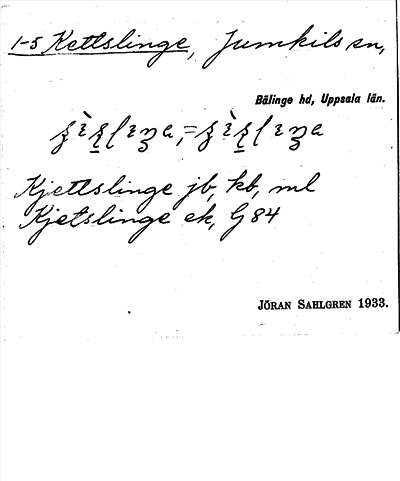 1-5 Kettslinge, Jumkils sn,
Bälinge hd, Uppsala län.
Kjettslinge jb, kb, ml
Kjetslinge ek, G 84
JÖRAN SAHLGREN 1933.